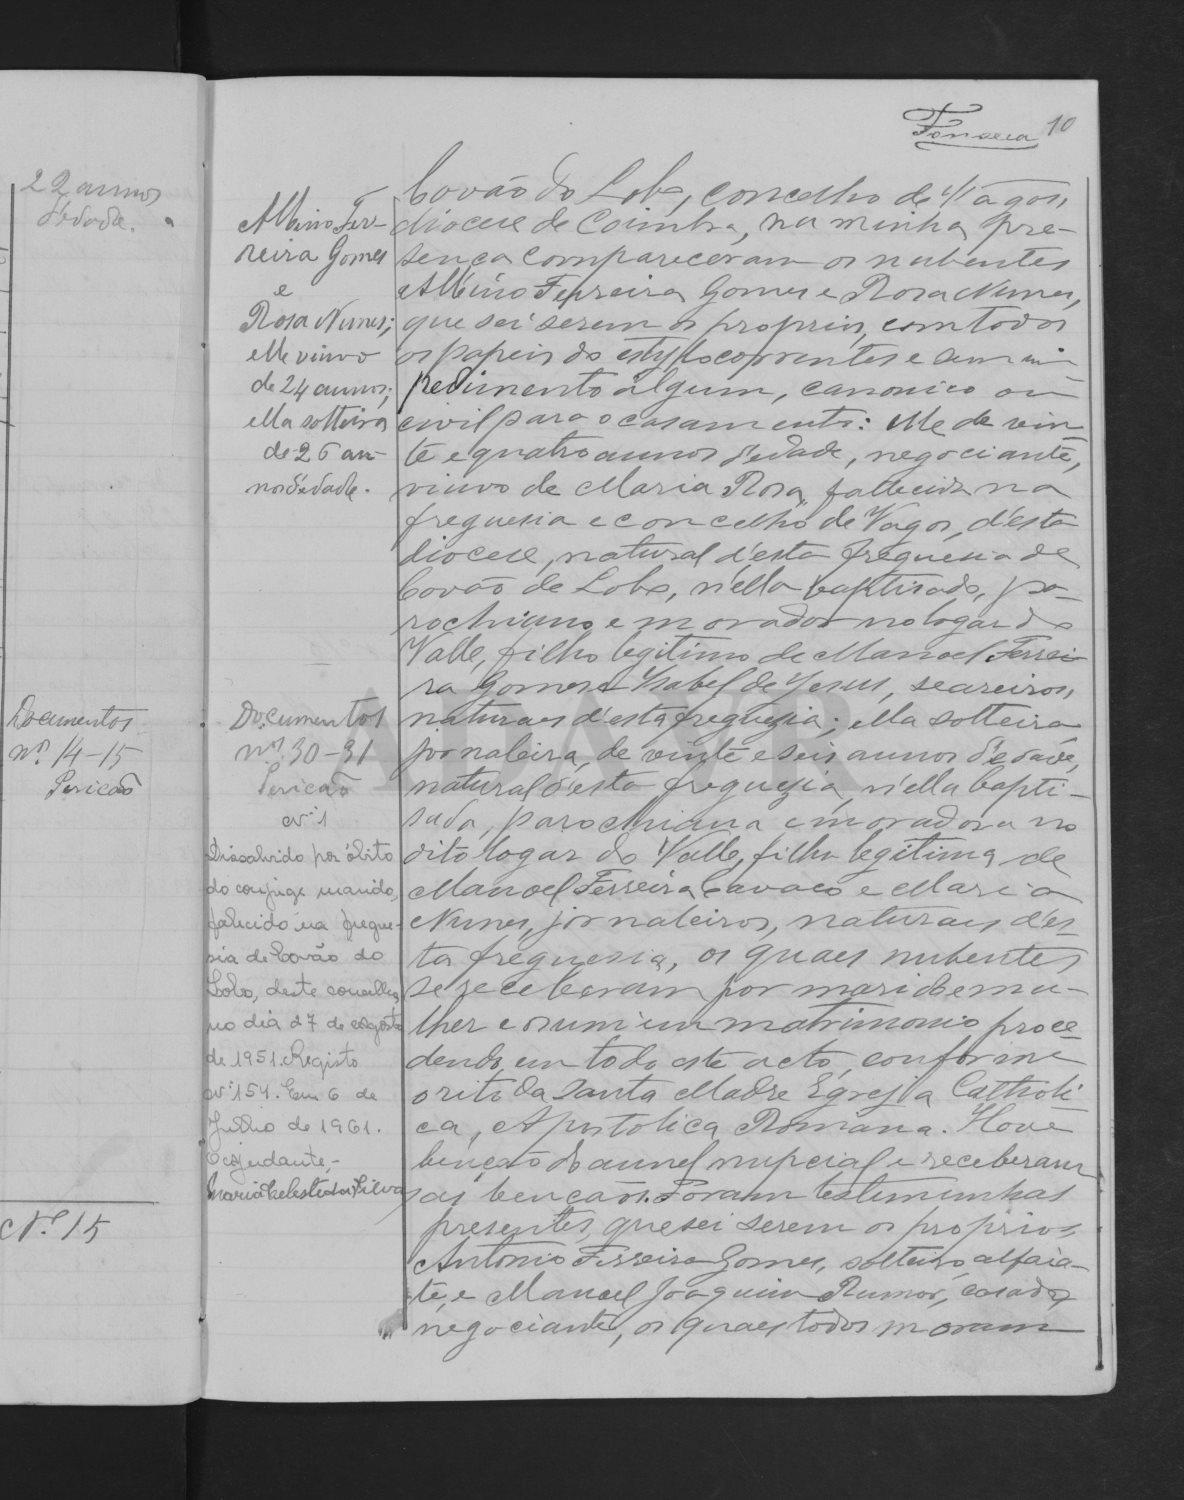 22 annos
d'edade.
Documentos
nos 14-15
Pericão
No 15
Fonseca 10
Albino Fer-
reira Gomes
e
Rosa Nunes;
elle viuvo
de 24 annos;
ella solteira
de 26 an-
nos d'edade.
Documentos
nos 30-31
Pericão
Nº 1
Dissolvido por óbito
do conjuge marido,
falecido na fregue-
sia de Covão do
Lobo, deste concelho,
no dia 27 de Agosto
de 1951. Registo
nº 154. Em 6 de
Julho de 1961.
O ajudante,-
Maria Celeste da Silva
Covão do Lobo, concelho de Vagos,
diocese de Coimbra, na minha pre-
sença compareceram os nubentes
Albino Ferreira Gomes e Rosa Nunes,
que sei serem os proprios, com todos
os papeis do estylo correntes e sem im
pedimento algum, canonico ou
civil para o casamento: elle de vin
te e quatro annos d'edade, negociante,
viuvo de Maria Rosa, fallecida na
freguesia e concelho de Vagos, d'esta
diocese, natural d'esta freguesia de
Covão do Lobo, n'ella baptisado, pa-
rochiano e morador no logar do
Valle, filho legitimo de Manoel Ferrei
ra Gomes e Isabel de Jesus, seareiros,
naturaes d'esta freguezia; ella solteira
jornaleira, de vinte e seis annos d'edade,
natural d'esta freguezia, n'ella bapti-
sada, parochiana e moradora no
dito logar do Valle, filha legitima de
Manoel Ferreira Cavaco e Maria
Nunes, jornaleiros, naturaes d'es
ta freguesia, os quaes nubentes
se receberam por marido e mu-
lher e os uni em matrimonio proce-
dendo em todo este acto, conforme
o rito da Santa Madre Egreja Catholi-
ca, Apostolica Romana. Houve
benção do annel nupcial e receberam
as bençãos. Foram testemunhas
presentes, que sei serem os proprios
Antonio Ferreira Gomes, solteiro, alfaia-
te, e Manoel Joaquim Rumor, casado,
negociante, os quaes todos moram